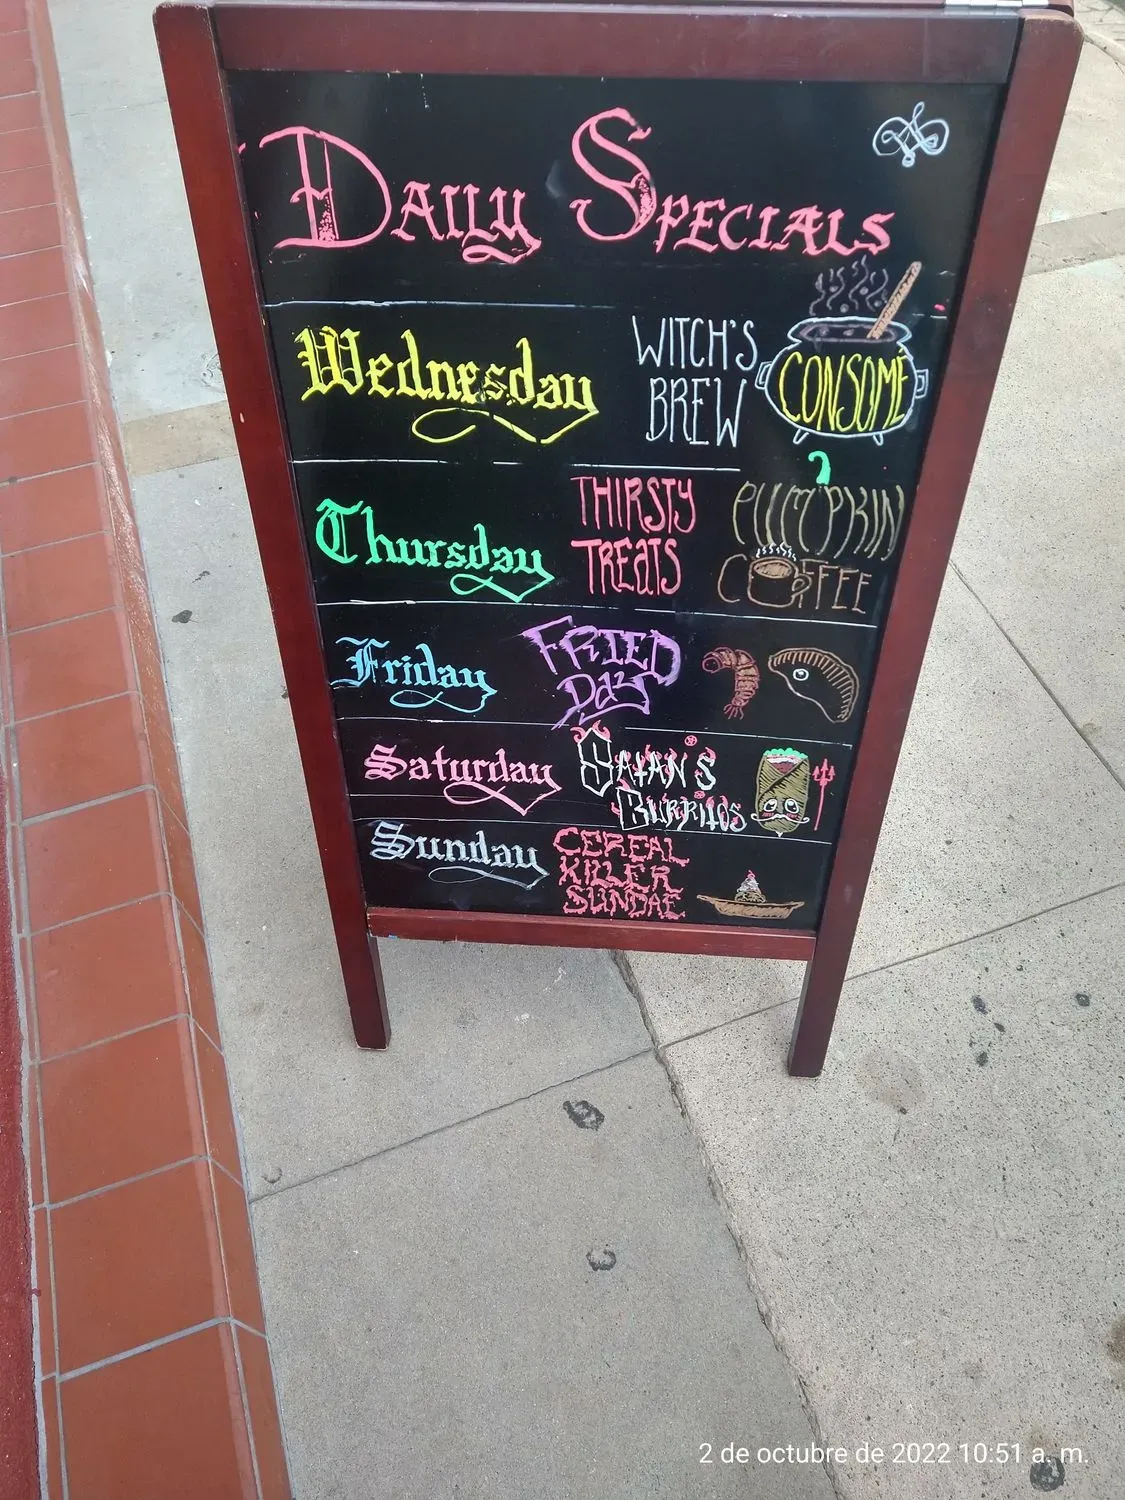 Daily Specials
Wednesday
WITCH'S
BREW
CONSOMÉ
Thursday
THIRSTY
TREATS
PUMPKIN
COFFEE
Friday
FRIED
DAY
Saturday
SATAN'S
BURRITOS
Sunday
CEREAL
KILLER
SUNDAE
2 de octubre de 2022 10:51 a. m.